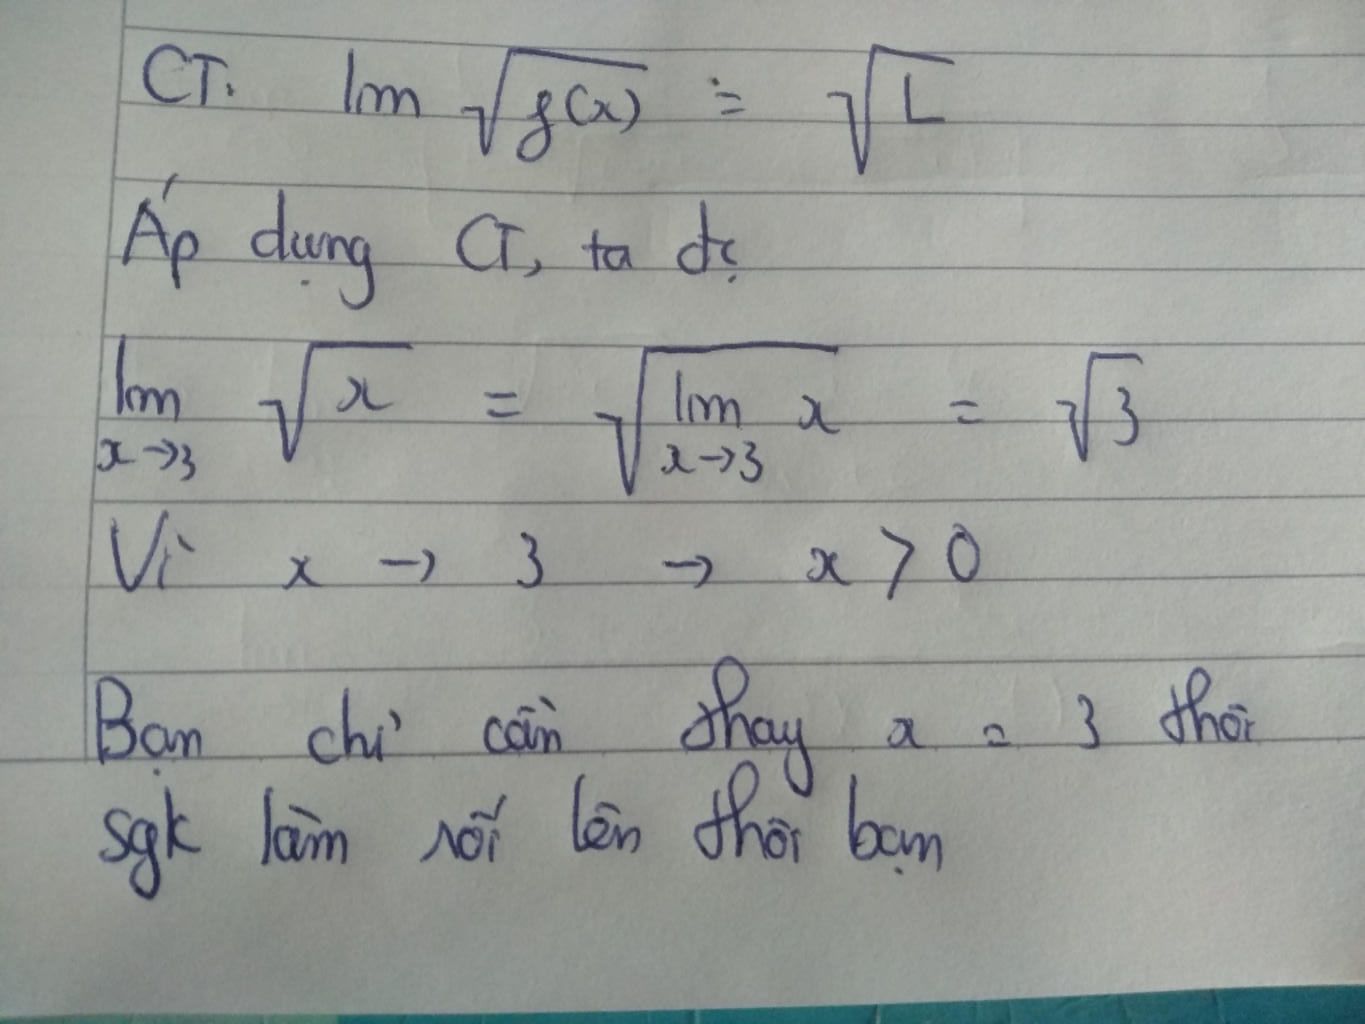 CT. lim √f(x) = √L
Áp dụng CT, ta đc
lim x→3 √x = √lim x→3 x = √3
Vì x → 3 → x > 0
Bạn chỉ cần thay x = 3 thôi
sgk làm rối lên thôi bạn